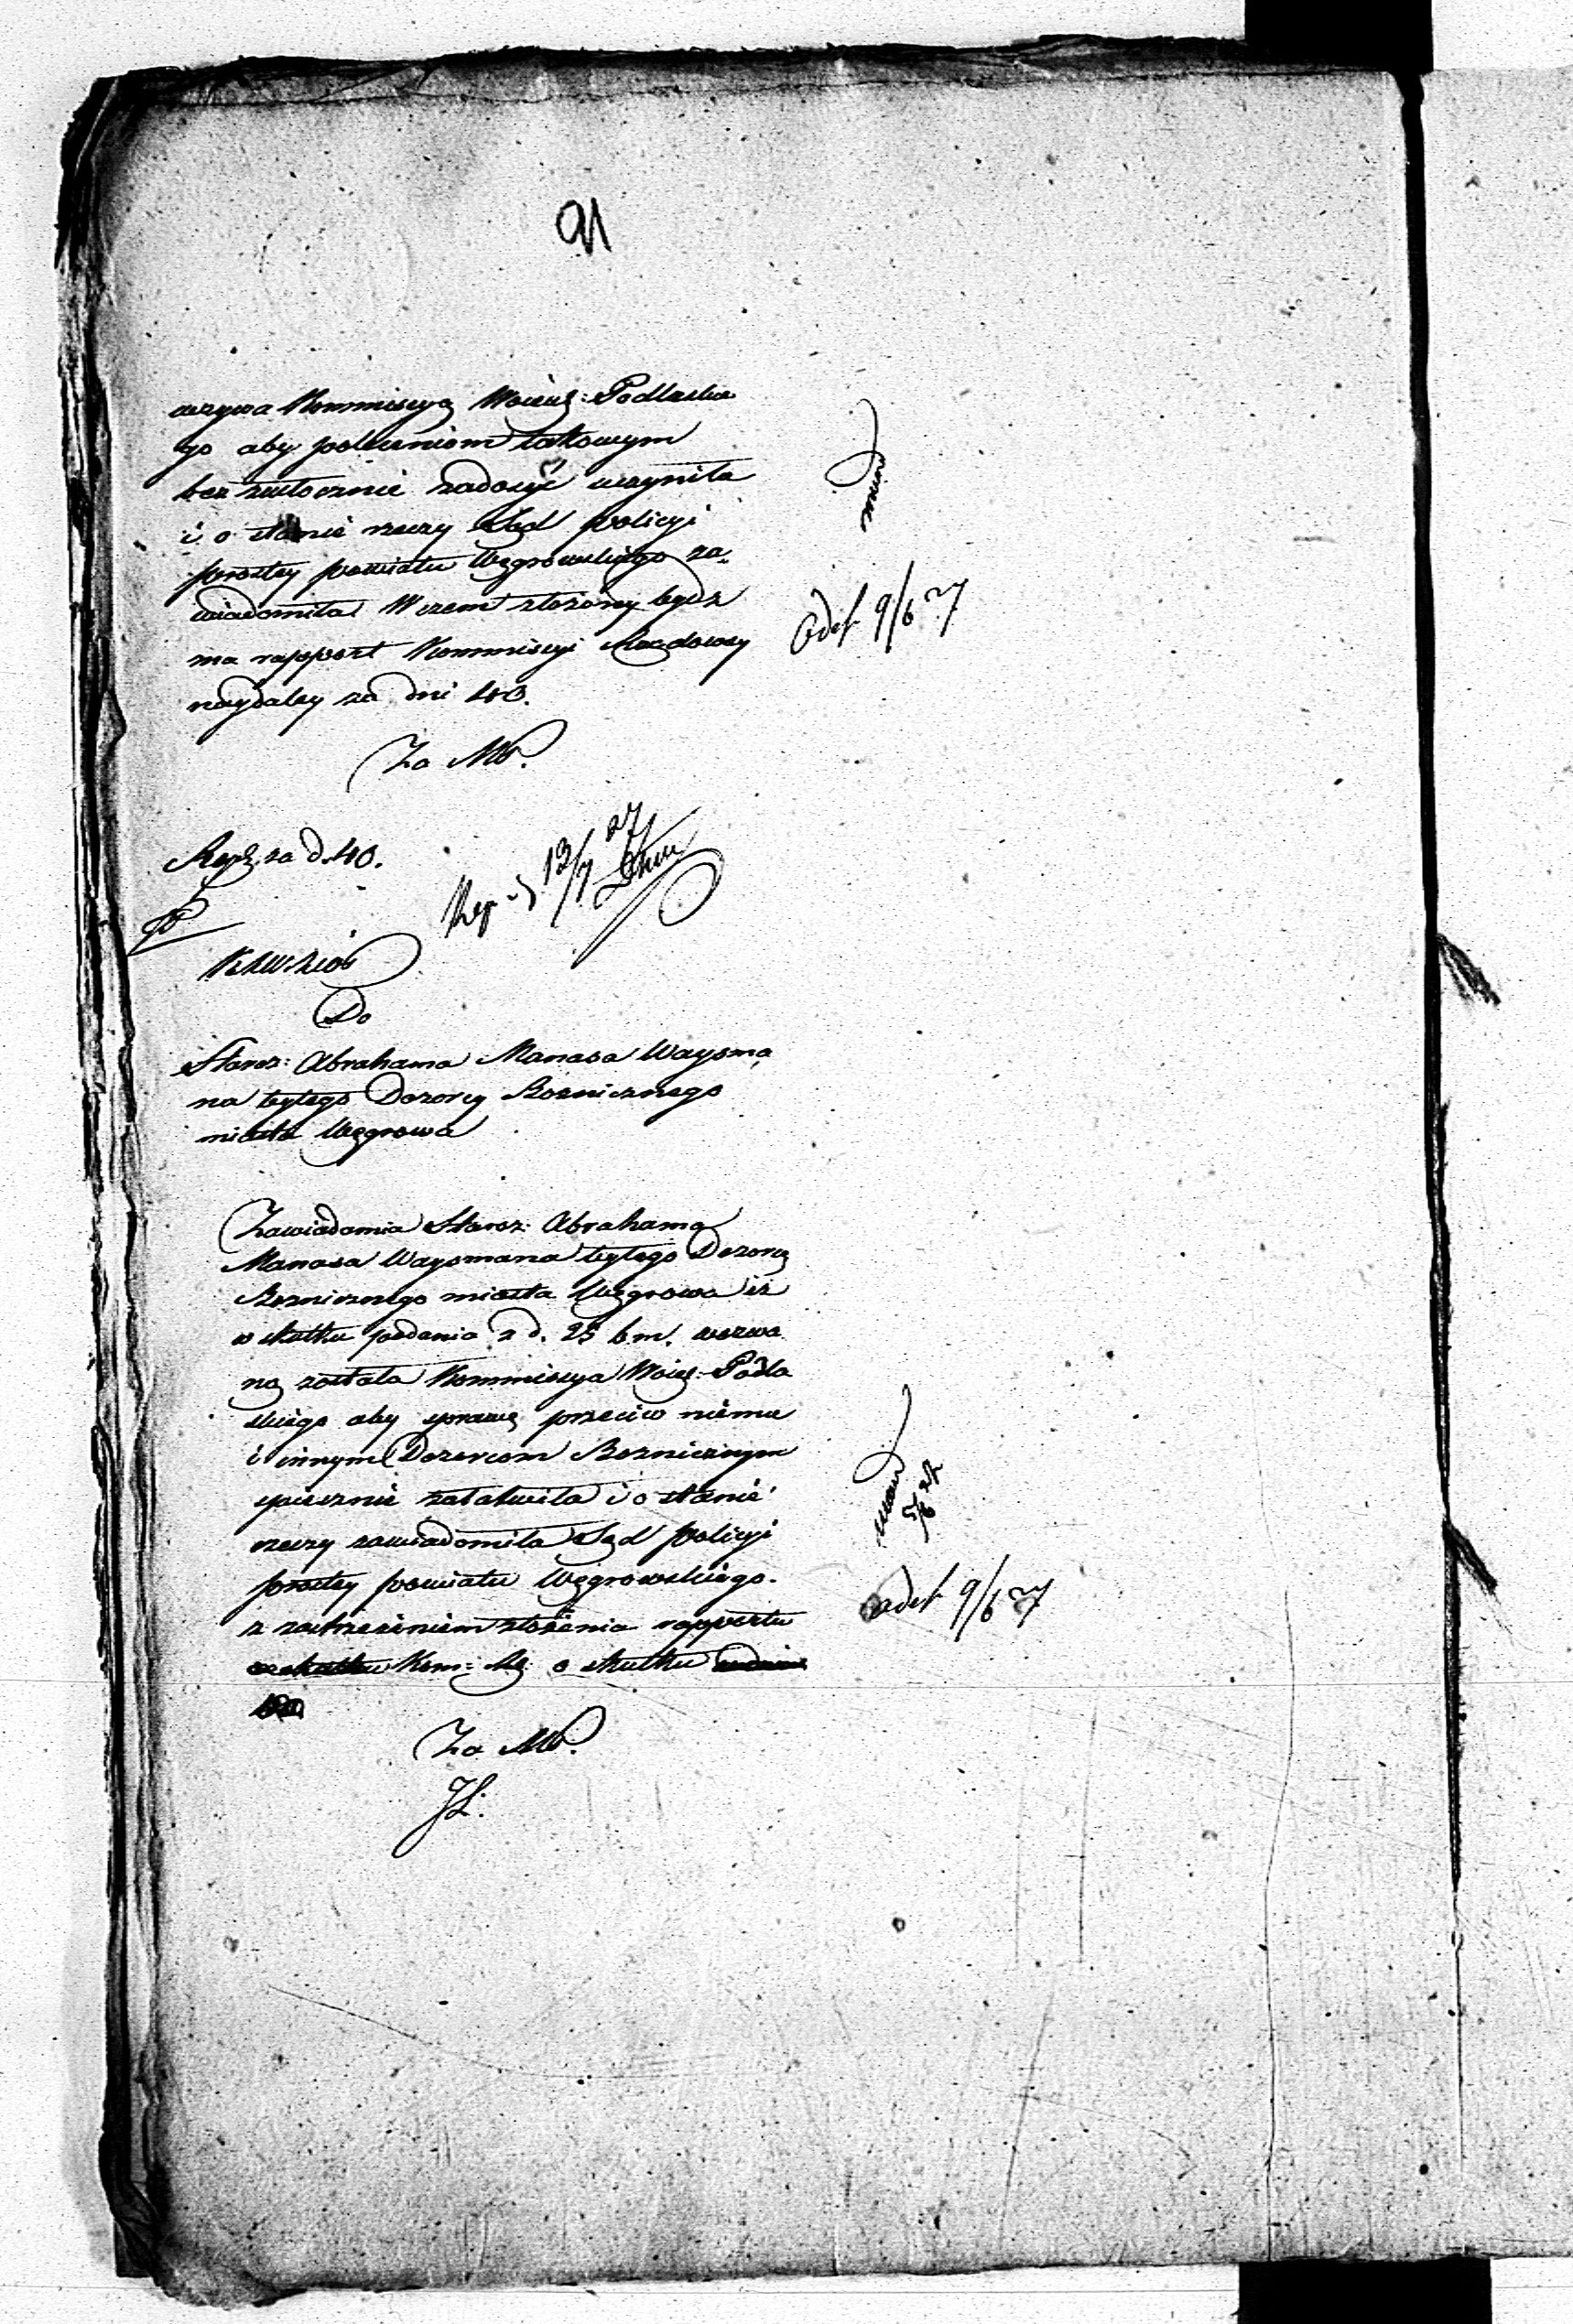 91
wzywa Kommissyą Wojew: Podlaskie
go aby poleceniom takowym
bez zwłocznie zadosyć uczyniła
i o stanie rzeczy Sąd policyi
prostey powiatu Węgrowskiego za-
wiadomiła W czem złożony będz
ma rapport Kommissyi Rządowey
naydaley za dni 40.
Za M
odesł 9/6 27
Rep. za d. 40.
13/7 27
Do
Staroz: Abrahama Manasa Waysma
na byłego Dozorcy Boźnicznego
miasta Węgrowa
Zawiadamia Staroz: Abrahama
Manasa Waysmana byłego Dozorcę
Bożnicznego miasta Węgrowa iż
w skutku podania z d. 25 b.m. wezwa
ną została Kommissya Wojew: Podla
skiego aby sprawę przeciw niemu
i innym Dozorcom Bożnicznym
spiesznie załatwiła i o stanie
rzeczy zawiadomiła Sąd policyi
prostey powiatu Węgrowskiego.
z zastrzeżeniem złożenia rapportu
Kom: Rz: o skutku
Za M
odesł 9/6 27